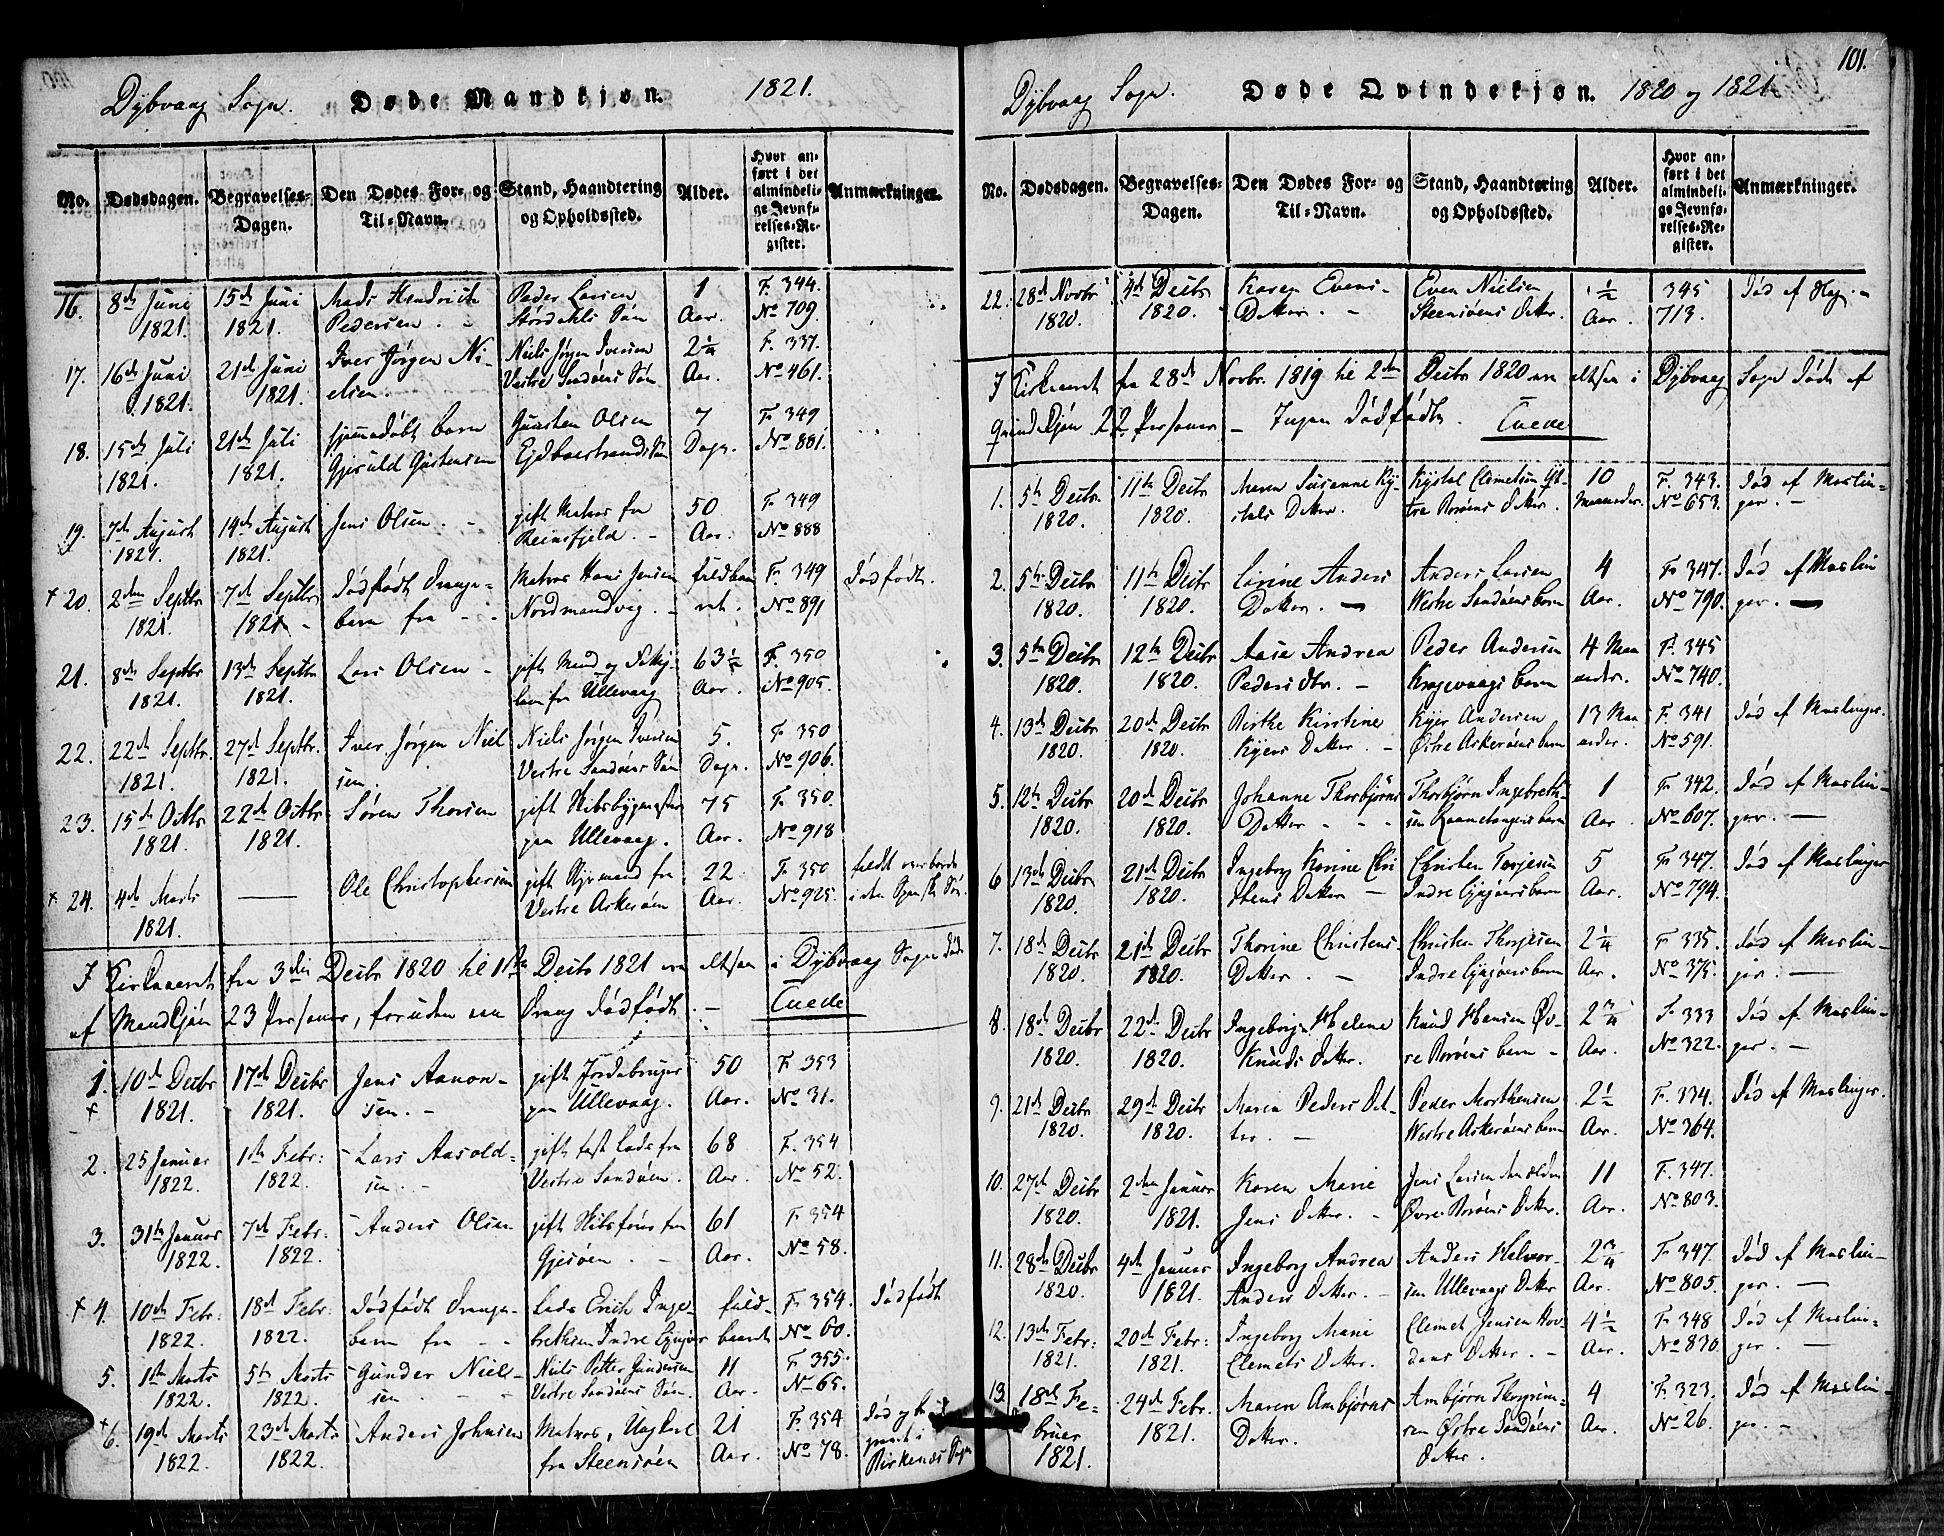 Dybvaag Sogn. Døde Mandkjøn. 1821.
No. Dødsdagen. Begravelses-Dagen. Den Dødes For- og Til-Navn. Stand, Haandtering og Opholdssted. Alder. Hvor anført i det almindelige Jevnførelses-Register. Anmærkninger.
16. 8de Juni 15de Juni Mads Hendrich Peder Larsen 1 F. 344.
1821. 1821. Pedersen. Størdahls Søn Aar. No 709.
17. 16de Juni 21de Juni Iver Jørgen Ni- Niels Jørgen Iversen 2¼ F. 337.
1821. 1821. elsen. Vestre Sandøens Søn Aar. No 461.
18. 15de Juli 21de Juli hjemmedøbt barn Gunsten Olsen 7 F. 349
1821. 1821. Gjeruld Gunstensen Dage. No 881.
19. 7de August 14de August Jens Olsen. gift Matros fra 50 F. 349
1821. 1821. Reinsfjeld. Aar. No 888
+ 20. 2den Septbr 7de Septbr Dødfødt Drenge- Matros Hans Jensen fuldbaa- F. 349 Dødfødt.
1821. 1821 barn fra Nordmandvig. ret. No 891
21. 8de Septbr 13de Septbr Lars Olsen gift Mand og 63½ F. 350
1821. 1821. fra Ullevaag Aar. No 905.
22. 22de Septbr. 27de Septbr. Iver Jørgen Niel Niels Jørgen Iversen 5. F. 350
1821. 1821. sen Vestre Sandøens Søn Dage. No 906.
23. 15de Octbr 22de Octbr Søren Thorsen gift Skibsbygmester 75 F. 350.
1821. 1821. paa Ullevaag. Aar. No 918
+ 24. 4de Marts — Ole Christophersen gift Styrmand fra 22 F. 350 faldt overborde
1821. Vestre Askerøen Aar. No 925. i den Spanske Søe.
I Kirkeaaret fra 3die Decbr 1820 til 1ste Decbr 1821 ere altsaa i Dybvaag Sogn døde
af Mandkjøn 23 Personer, foruden een Dreng dødfødt. Tuede
1. 10de Decbr 17de Decbr Jens Aanon- gift Jordebruger 50 F. 353
+ 1821. 1821. sen. paa Ullevaag. Aar. No 31.
2. 25 Januar 1ste Febr: Lars Aasold- gift Lods fra 68 F. 354
1822. 1822. sen. Vestre Sandøen. Aar. No 52.
3. 31te Januar 7de Febr. Anders Olsen gift fra 61 F. 354
1822. 1822. Gjesøen Aar. No 58.
+ 4. 10de Febr: 18de Febr. Dødfødt Drenge- Lods Erich Inge- fuld- F. 354. Dødfødt
1822. 1822. barn fra brethsen Indre Gjngøer baaret No 60.
5. 1ste Marts 5te Marts Gunder Niel- Niels Petter Gundersen 11 F. 355.
1822. 1822. sen Vestre Sandøens Søn. Aar. No 65.
+ 6. 19de Marts 23de Marts Anders Johnsen Matros, Ungkarl 21 F. 354 Død og be-
1822. 1822. fra Steensøen Aar. No 78. gravet i
Birkenæs Sogn
101.
Dybvaag Sogn. Døde Qvindekjøn. 1820 og 1821
No. Dødsdagen. Begravelses-Dagen. Den Dødes For- og Til-Navn. Stand, Haandtering og Opholdssted. Alder. Hvor anført i det almindelige Jevnførelses-Register. Anmærkninger.
22. 28de Novbr 4de Decbr Karen Evens- Even Nielsen ½ 345 Død af
1820. 1820. Datter. Steensøens Datter. Aar. 713.
I Kirkeaaret fra 28de Novbr. 1819 til 2den Decbr 1820 ere altsaa i Dybvaag Sogn døde af
Qvindekjøn 22 Personer — Ingen Dødfødte. Tuede
1. 5te Decbr. 11te Decbr Maren Susanne Ky- Kystol Clemetsen 10 F. 343. Død af Meslin-
1820. 1820. stols Datter. Borøens Datter. Maaneder. No 653. ger.
2. 5te Decbr 11te Decbr Lovine Anders Anders Larsen 4 F. 347. Død af Meslin
1820. 1820. Datter. Vestre Sandøens barn Aar. No 790. ger.
3. 5te Decbr 12te Decbr Aase Andrea Peder Andersen 4 Maa F. 345
1820. 1820. Peders dtr. Kragevaags barn neder. No 740.
4. 13de Decbr 20de Decbr Birte Kirstine Kjer Andersen 13 Maa F. 341 Død af Meslinger.
1820. 1820. Kjers Datter. Østre Askerøens barn neder. No 591.
5. 12te Decbr 20de Decbr Johanne Thorbjørns Thorbjørn Ingebreth- 1 F. 342. Død af Meslin-
1820. 1820. Datter sen barn Aar. No 607. ger.
6 13de Decbr 21de Decbr Ingeborg Karine Chri Christen Torjesen 5 F. 347. Død af Meslinger
1820. 1820. stens Datter Indre Gjngøers barn Aar. No 794.
7. 18de Decbr 21de Decbr Thorine Christens Christen Thorjesen 2¼ F. 335. Død af Meslin-
1820. 1820. Datter. Indre Gjngøers barn Aar. No 375. ger.
8. 18de Decbr 22de Decbr Ingeborg Helene Knud Hansen Øv- 2¾ F. 333 Død af Meslin-
1820. 1820. Knuds Datter. re Borøens barn Aar. No 322. ger.
9. 21de Decbr 29de Decbr Maren Peders Dat- Peder Morthensen 2½ F. 334. Død af Meslinger.
1820. 1820. ter. Vestre Askerøens barn Aar. No 364.
10. 27de Decbr 2den Januar Karen Marie Jens Larsen den ældre 11 F. 347.
1820. 1821. Jens Datter. Øvre Borøens Datter. Aar. No 803.
11. 28de Decbr 4de Januar Ingeborg Andrea Anders Halvor- 2¾ F. 347. Død af Meslin-
1820. 1821. Anders Datter. sen Ullevaags Datter Aar. No 805. ger.
12. 13de Febr: 20de Febr: Ingeborg Marie Clemet Jensen Hov- 4½ F. 348 Død af Meslin-
1821. 1821. Clemets Datter. dens Datter. Aar. No 830 ger.
13. 18de Fe- 24de Febr. Maren Ambjørns Ambjørn Thorgrim- 4 F. 323. Død af Meslin-
bruar 1821. Datter. sen Østre Sandøens Aar. No 26. ger.
1821. Datter.